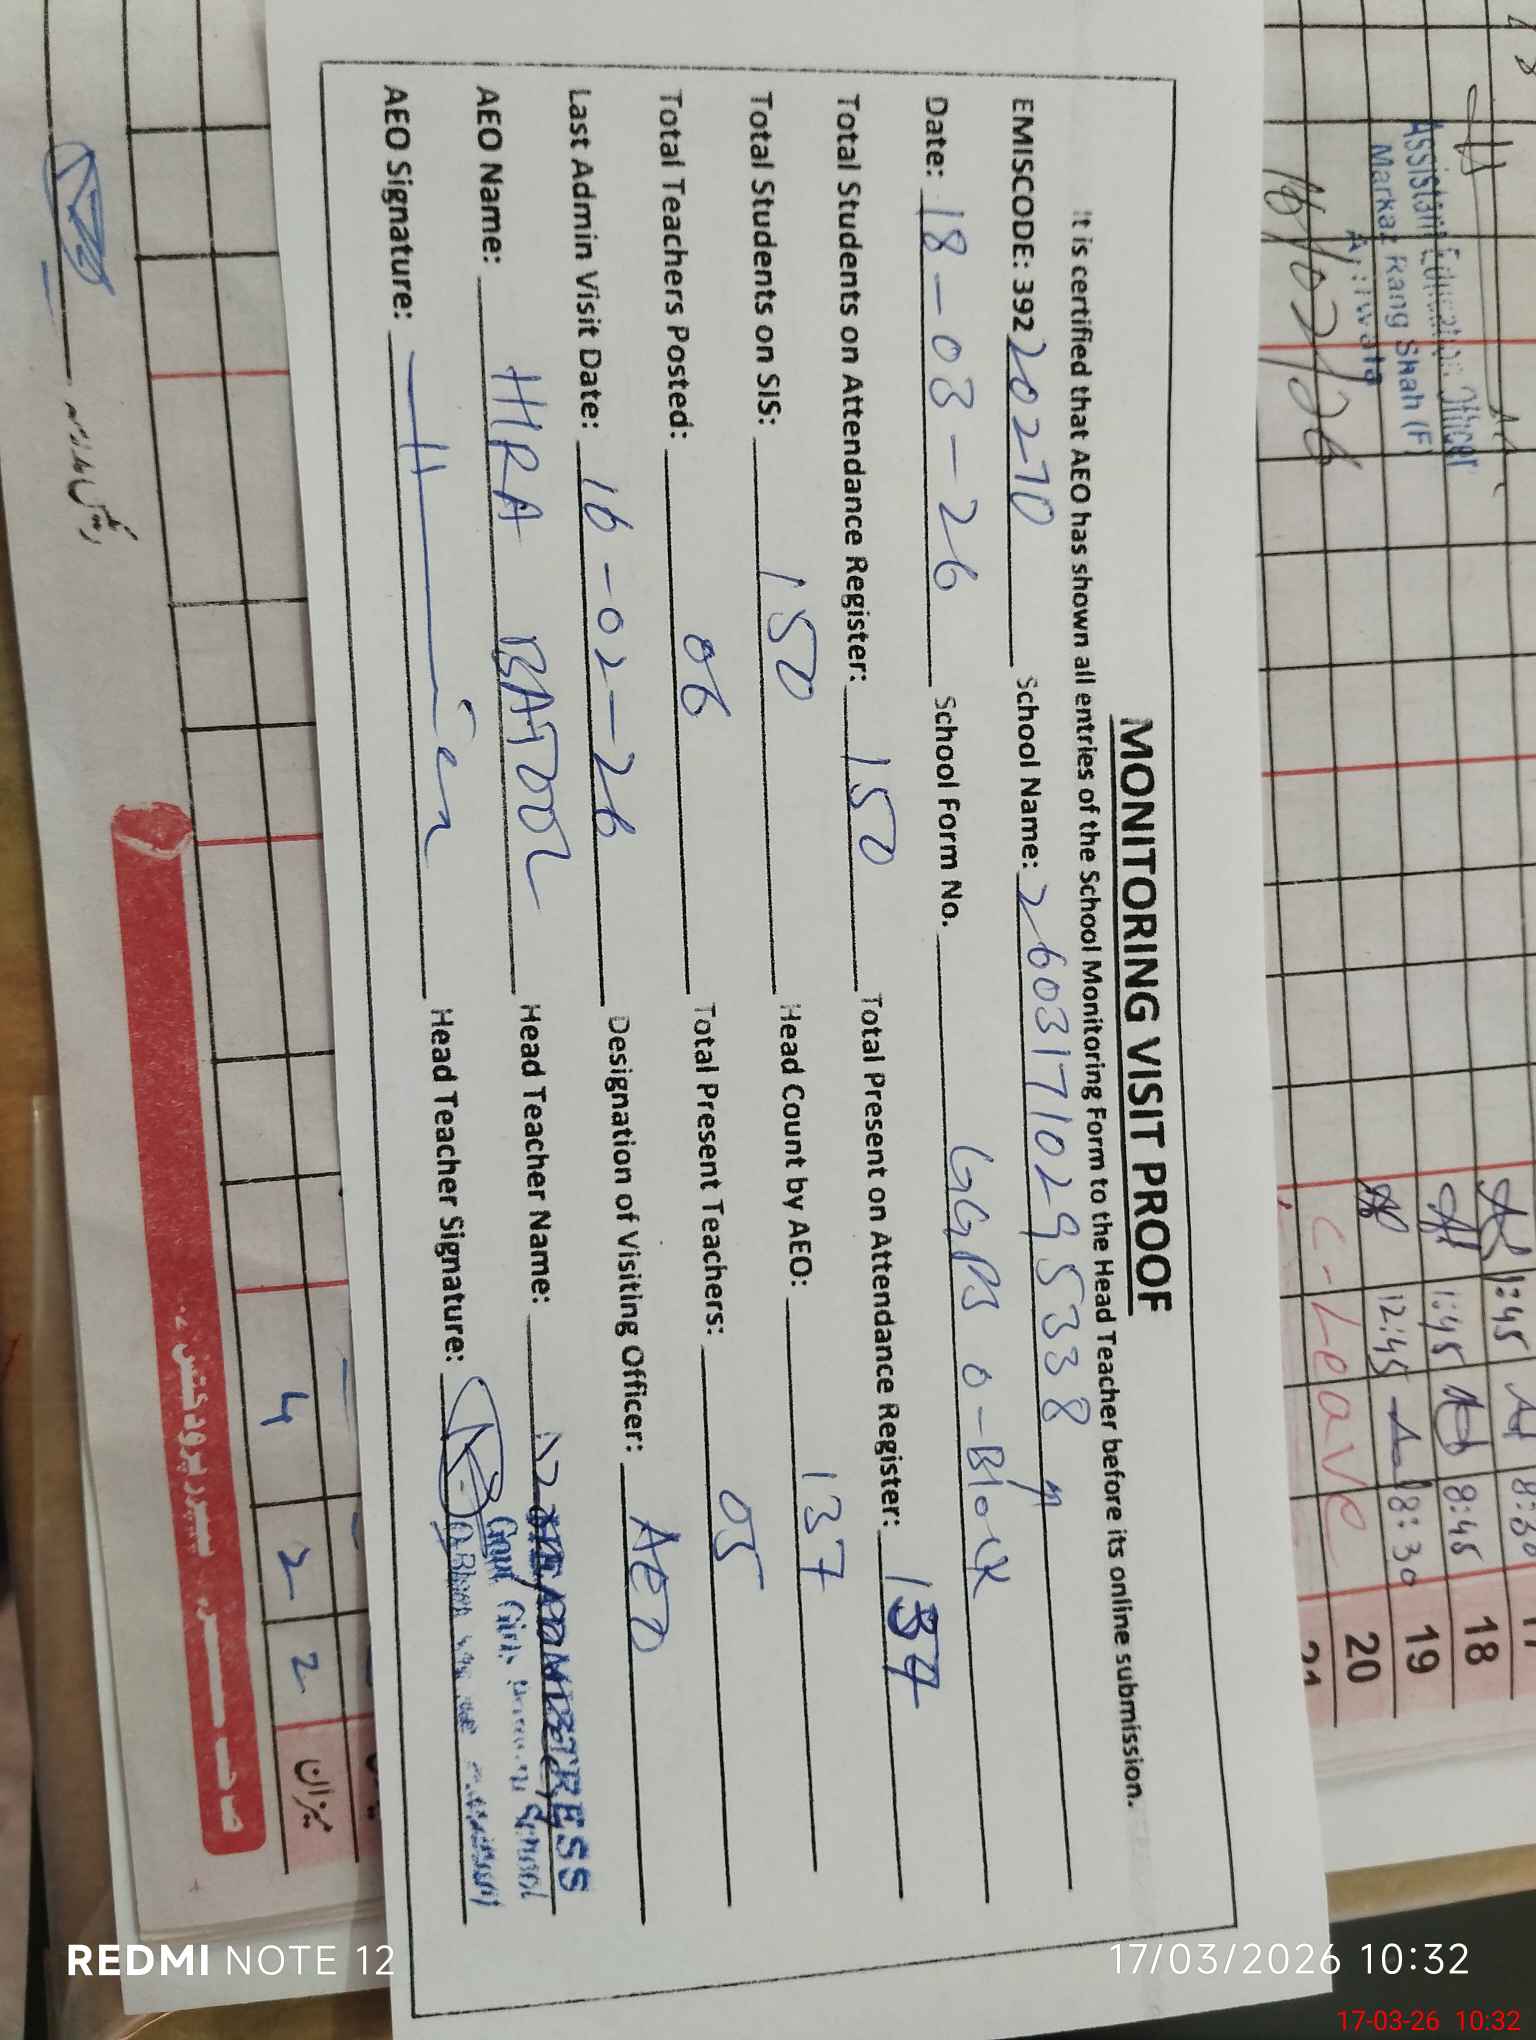 MONITORING VISIT PROOF
It is certified that AEO has shown all entries of the School Monitoring Form to the Head Teacher before its online submission.
EMISCODE: 39220270 School Name: 260317102953384
Date: 18-03-26 School Form No. GGPS O-Block
Total Students on Attendance Register: 150 Total Present on Attendance Register: 137
Total Students on SIS: 150 Head Count by AEO: 137
Total Teachers Posted: 06 Total Present Teachers: 05
Last Admin Visit Date: 16-02-26 Designation of Visiting Officer: AEO
AEO Name: HIRA BATOOL Head Teacher Name: HEADMISTRESS
Govt Girls Primary School
AEO Signature: Head Teacher Signature:
Assistant Education Officer
Markaz Rang Shah (F)
16/02/26
1:45 8:30 17
1:45 8:45 18
12:45 8:30 19
C-Leave 20
21
4 2 2 میزان
REDMI NOTE 12
17/03/2026 10:32
17-03-26 10:32